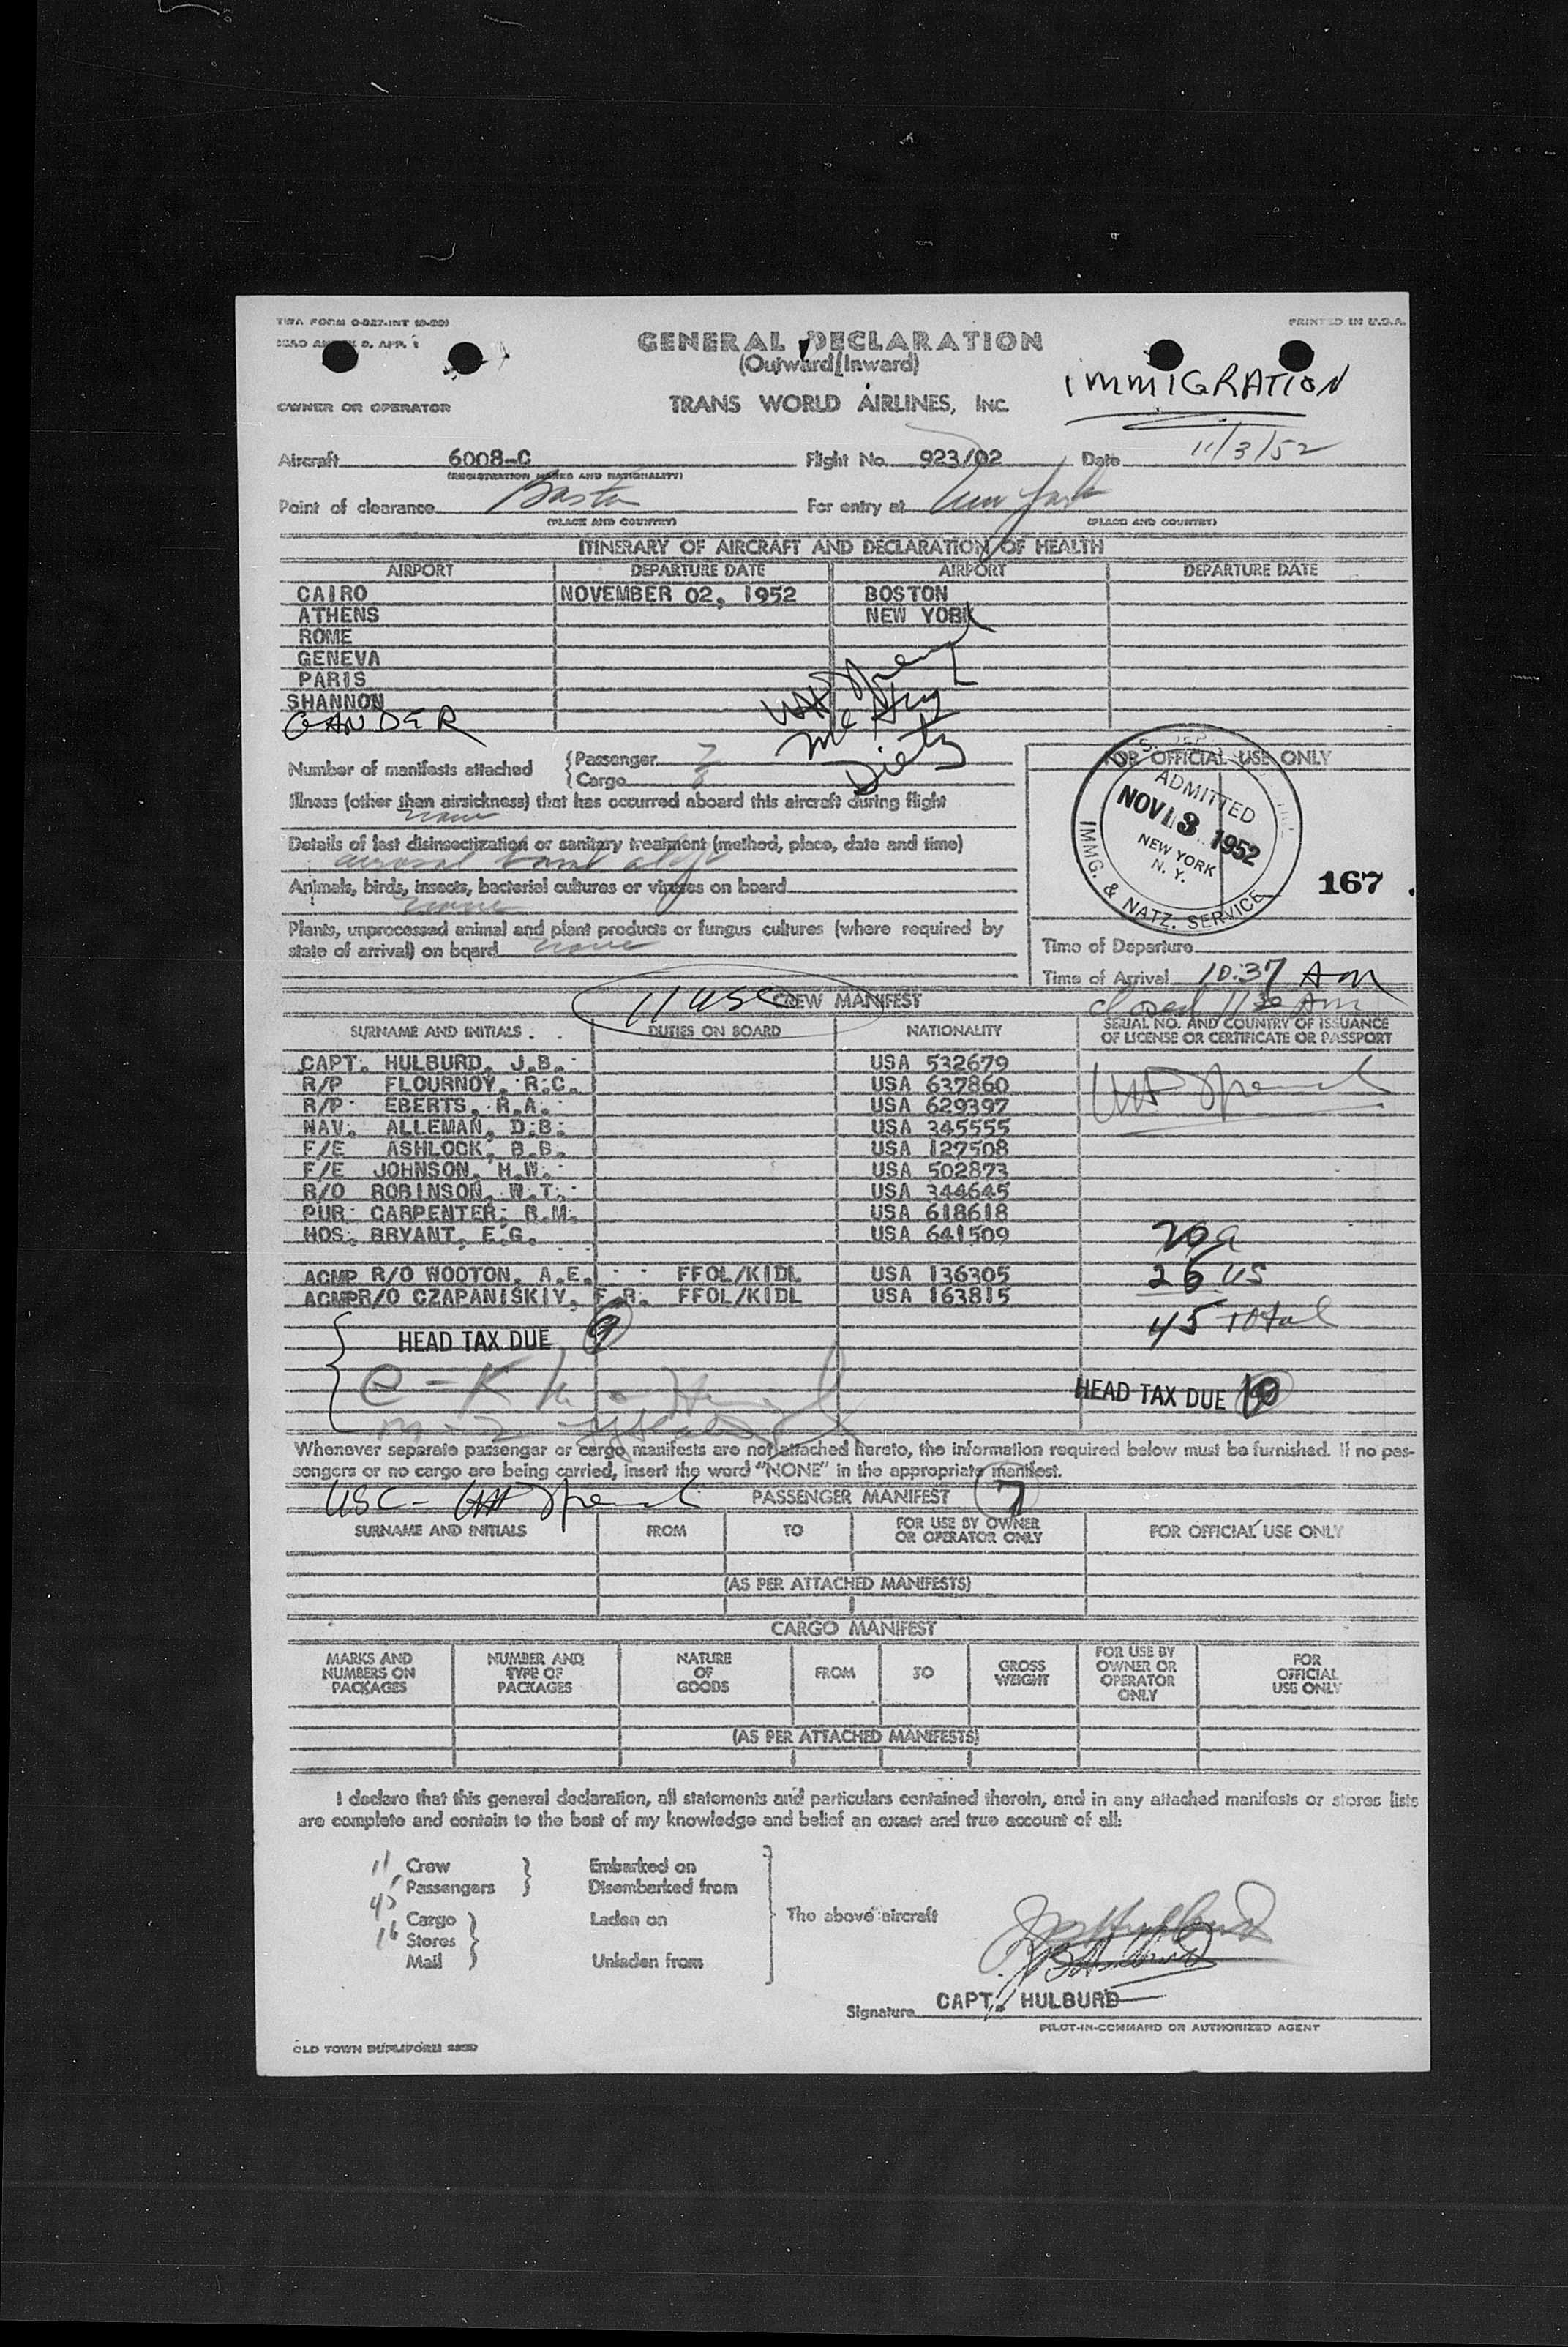 TWA FORM O-827-INT
PRINTED IN U.S.A.
GENERAL DECLARATION
(Outward/Inward)
IMMIGRATION
OWNER OR OPERATOR TRANS WORLD AIRLINES, INC.
Aircraft 6008-C Flight No. 923/02 Date 11/3/52
(REGISTRATION MARKS AND NATIONALITY)
Point of clearance Boston For entry at New York
(PLACE AND COUNTRY) (PLACE AND COUNTRY)
ITINERARY OF AIRCRAFT AND DECLARATION OF HEALTH
AIRPORT DEPARTURE DATE AIRPORT DEPARTURE DATE
CAIRO NOVEMBER 02, 1952 BOSTON
ATHENS NEW YORK
ROME
GENEVA
PARIS
SHANNON
GANDER
Dietz
Number of manifests attached { Passenger 7
Cargo 8
FOR OFFICIAL USE ONLY
ADMITTED
NOV 3 1952
NEW YORK
N. Y.
IMMG. & NATZ. SERVICE
167
Illness (other than airsickness) that has occurred aboard this aircraft during flight
none
Details of last disinsectization or sanitary treatment (method, place, date and time)
aerosol bomb
Animals, birds, insects, bacterial cultures or viruses on board
none
Plants, unprocessed animal and plant products or fungus cultures (where required by
state of arrival) on board none
Time of Departure
Time of Arrival 10:37 AM
closed 11 30 AM
11 USC CREW MANIFEST
SURNAME AND INITIALS DUTIES ON BOARD NATIONALITY SERIAL NO. AND COUNTRY OF ISSUANCE
OF LICENSE OR CERTIFICATE OR PASSPORT
CAPT. HULBURD, J.B. USA 532679
R/P FLOURNOY, R.C. USA 637860
R/P EBERTS, R.A. USA 629397
NAV. ALLEMAN, D.B. USA 345555
F/E ASHLOCK, B.B. USA 127508
F/E JOHNSON, H.W. USA 502873
R/O ROBINSON, W.T. USA 344645
PUR CARPENTER, R.M. USA 618618
HOS. BRYANT, E.G. USA 641509
ACMP R/O WOOTON, A.E. FFOL/KIDL USA 136305
26 US
ACMP R/O CZAPANISKIY, F.R. FFOL/KIDL USA 163815
45 Total
HEAD TAX DUE 9
HEAD TAX DUE
Whenever separate passenger or cargo manifests are not attached hereto, the information required below must be furnished. If no pas-
sengers or no cargo are being carried, insert the word "NONE" in the appropriate manifest.
USC- PASSENGER MANIFEST 7
SURNAME AND INITIALS FROM TO FOR USE BY OWNER
OR OPERATOR ONLY FOR OFFICIAL USE ONLY
(AS PER ATTACHED MANIFESTS)
CARGO MANIFEST
MARKS AND
NUMBERS ON
PACKAGES NUMBER AND
TYPE OF
PACKAGES NATURE
OF
GOODS FROM TO GROSS
WEIGHT FOR USE BY
OWNER OR
OPERATOR
ONLY FOR
OFFICIAL
USE ONLY
(AS PER ATTACHED MANIFESTS)
I declare that this general declaration, all statements and particulars contained therein, and in any attached manifests or stores lists
are complete and contain to the best of my knowledge and belief an exact and true account of all:
11 Crew Embarked on
45 Passengers Disembarked from
The above aircraft
16 Cargo Laden on
Stores
Mail Unladen from
Signature CAPT. HULBURD
PILOT-IN-COMMAND OR AUTHORIZED AGENT
OLD TOWN DUPLIFORM